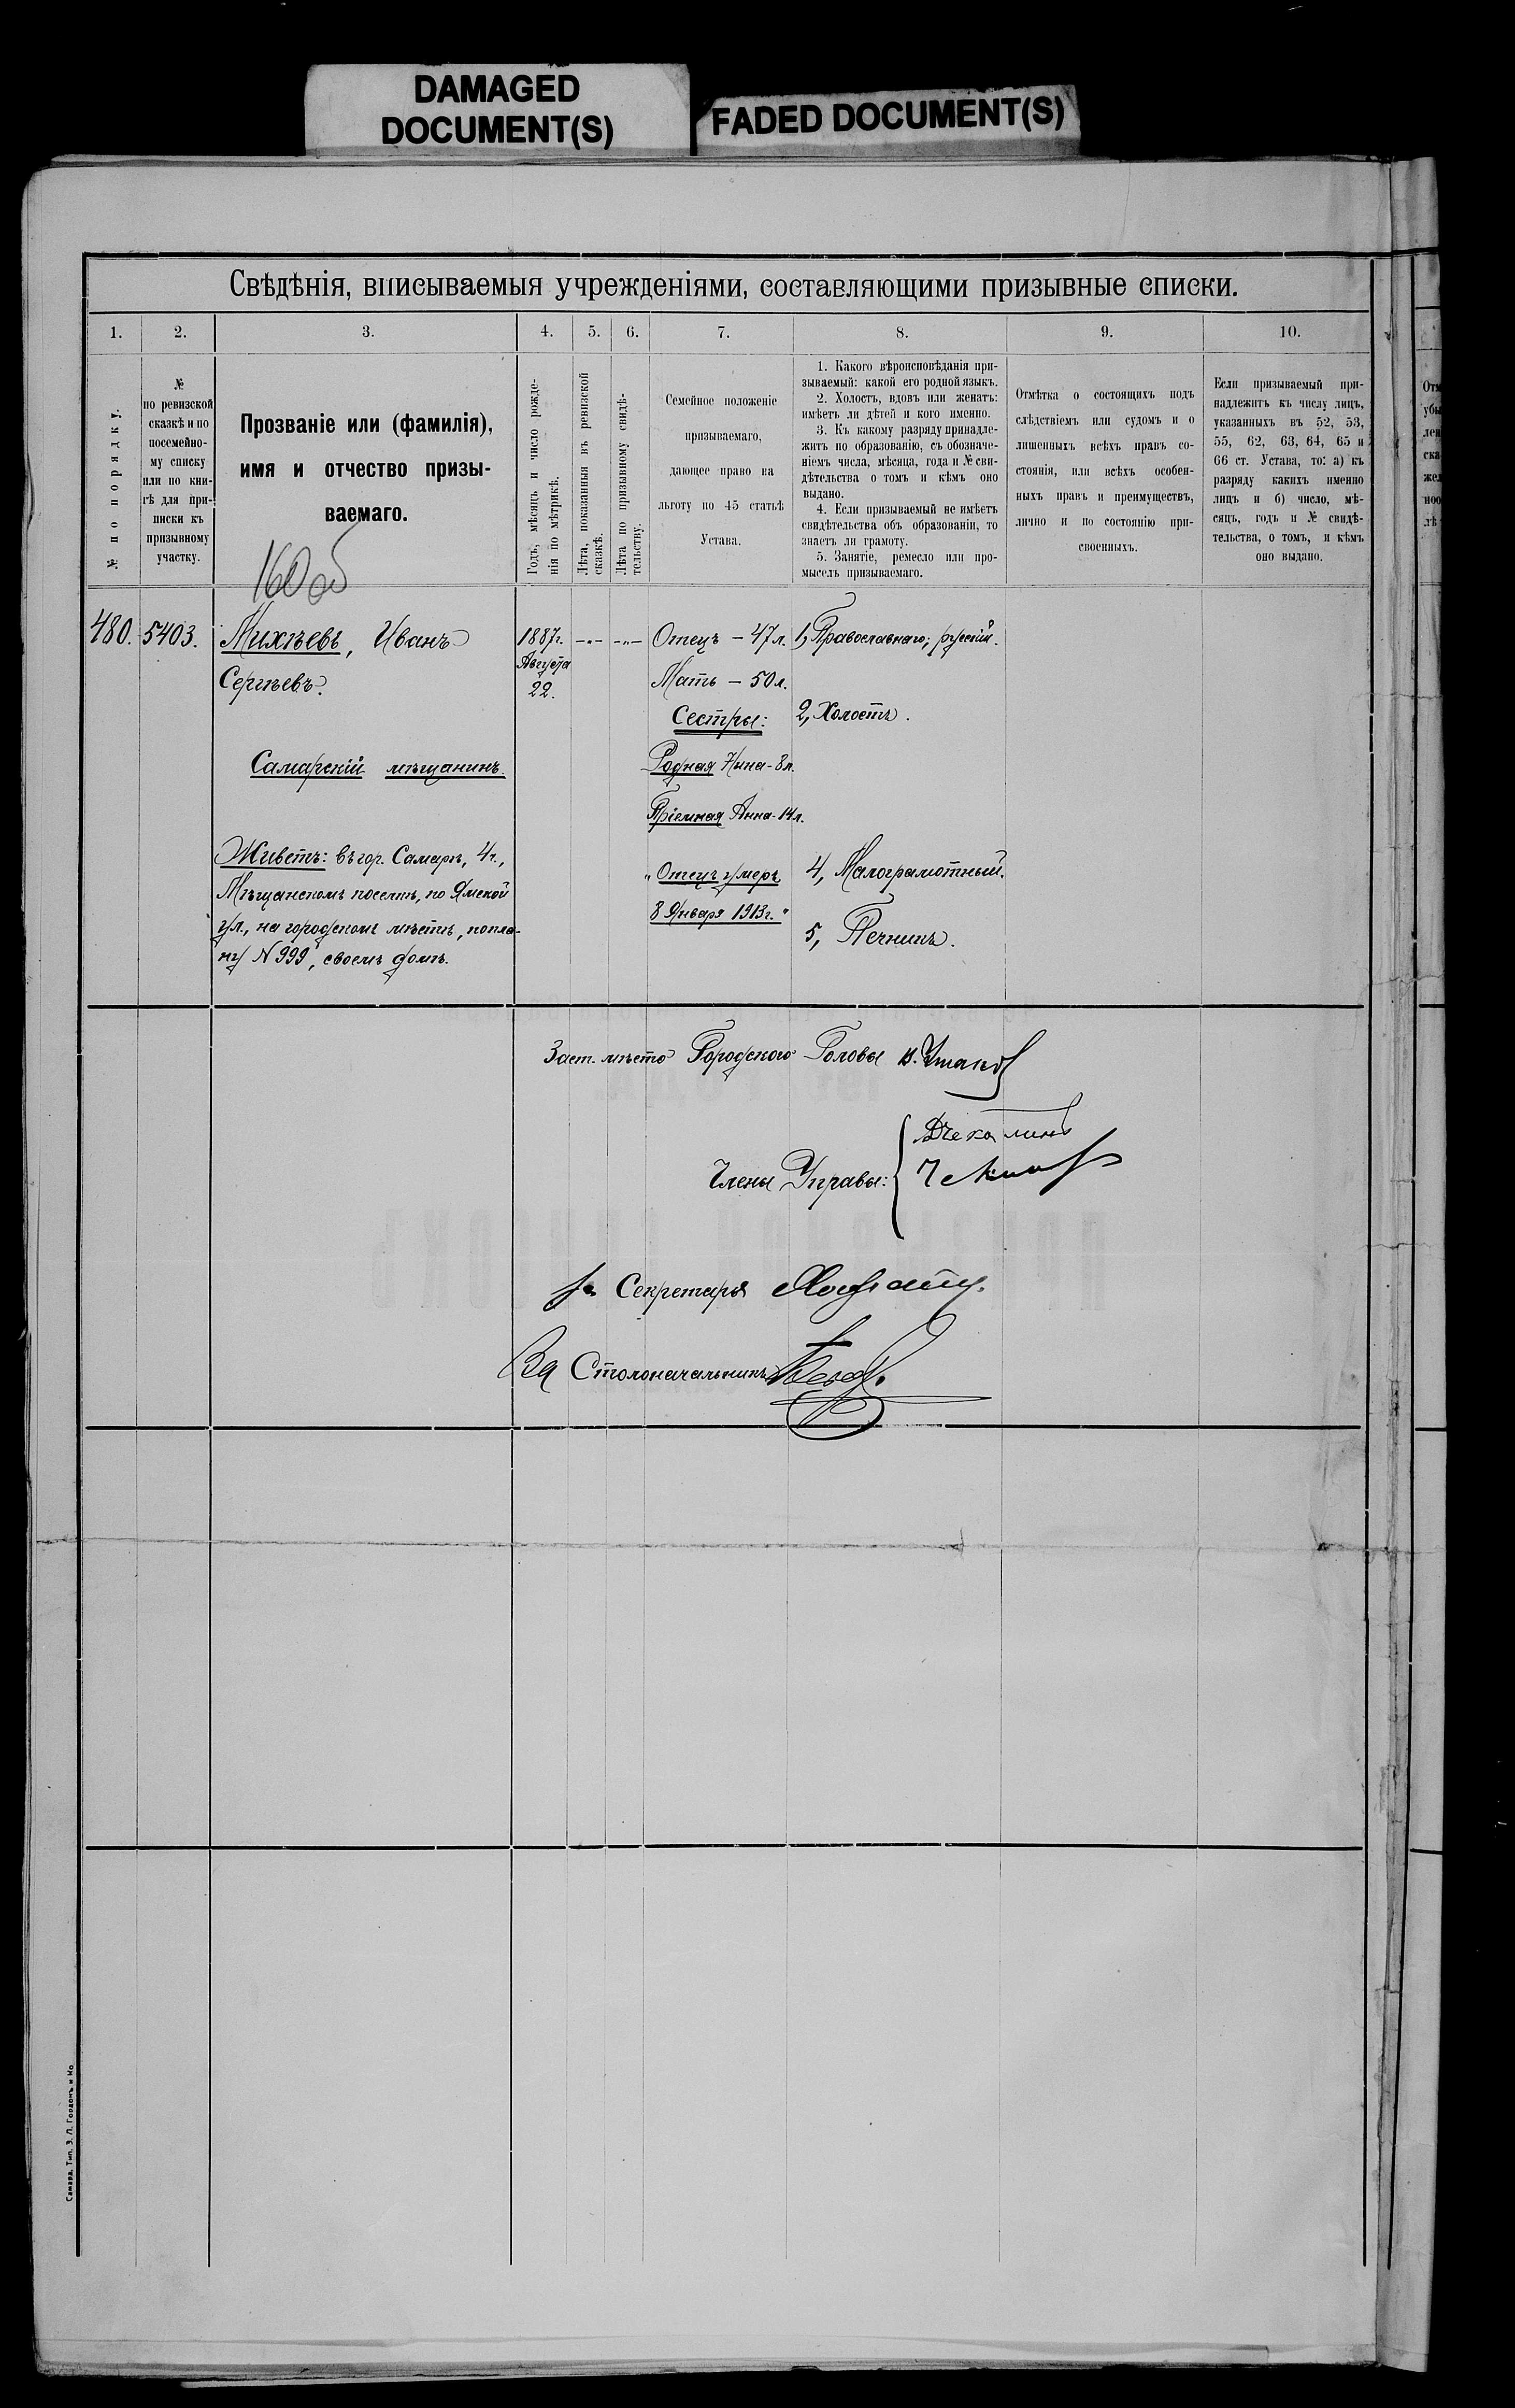 DAMAGED
DOCUMENT(S)
FADED DOCUMENT(S)
Свѣдѣнія, вписываемыя учрежденіями, составляющими призывные списки.
1.
2.
3.
4.
5.
6.
7.
8.
9.
10.
№ по порядку.
№
по ревизской
сказкѣ и по
посемейно-
му списку
или по кни-
гѣ для при-
писки къ
призывному
участку.
Прозваніе или (фамилія),
имя и отчество призы-
ваемаго.
160 об
Годъ, мѣсяцъ и число рожде-
нія по мѣтрикѣ.
Лѣта, показанныя въ ревизской
сказкѣ.
Лѣта по призывному свидѣ-
тельству.
Семейное положеніе
призываемаго,
дающее право на
льготу по 45 статьѣ
Устава.
1. Какого вѣроисповѣданія при-
зываемый: какой его родной языкъ.
2. Холостъ, вдовъ или женатъ:
имѣетъ ли дѣтей и кого именно.
3. Къ какому разряду принадле-
житъ по образованію, съ обозначе-
ніемъ числа, мѣсяца, года и № сви-
дѣтельства о томъ и кѣмъ оно
выдано.
4. Если призываемый не имѣетъ
свидѣтельства объ образованіи, то
знаетъ ли грамоту.
5. Занятіе, ремесло или про-
мыселъ призываемаго.
Отмѣтка о состоящихъ подъ
слѣдствіемъ или судомъ и о
лишенныхъ всѣхъ правъ со-
стоянія, или всѣхъ особен-
ныхъ правъ и преимуществъ,
лично и по состоянію при-
своенныхъ.
Если призываемый при-
надлежитъ къ числу лицъ,
указанныхъ въ 52, 53,
55, 62, 63, 64, 65 и
66 ст. Устава, то: а) къ
разряду какихъ именно
лицъ и б) число, мѣ-
сяцъ, годъ и № свидѣ-
тельства, о томъ, и кѣмъ
оно выдано.
480.
5403.
Михѣевъ, Иванъ
Сергѣевъ.
Самарскій мѣщанинъ.
Живетъ: въ гор. Самарѣ, 4 ч.,
Мѣщанскомъ поселкѣ, по Ямской
ул., на городскомъ мѣстѣ, по пла-
ну N 999, своемъ домѣ.
1887 г.
Августа
22.
Отецъ – 47 л.
Мать – 50 л.
Сестры:
Родная Нина - 8 л.
Пріемная Анна - 14 л.
"Отецъ умеръ
8 Января 1913 г."
1, Православнаго; русскій.
2, Холостъ.
4, Малограмотный.
5, Печникъ.
Заст. мѣсто Городского Головы В. Ушаковъ
Члены Управы:
Секретаря
За Столоначальникъ
Самара. Тип. З. Л. Гордонъ и Ко